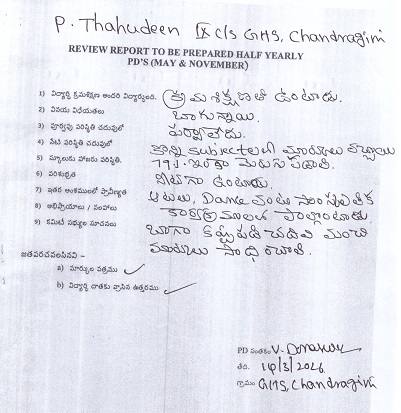 P. Thahudeen IX c/s GHS, Chandragiri
REVIEW REPORT TO BE PREPARED HALF YEARLY
PD'S (MAY & NOVEMBER)
1) విద్యార్థి క్రమశిక్షణ అందరి విద్యార్థులది. క్రమశిక్షణతో ఉంటాడు.
2) వినయ విధేయతలు బాగున్నాయి.
3) పూర్వపు పరిస్థితి చదువులో పర్వాలేదు.
4) నేటి పరిస్థితి చదువులో కొన్ని subjects లో మార్కులు తగ్గాయి
5) స్కూలుకు హాజరు పరిస్థితి. 79%. ఇంకా మెరుగు పడాలి.
6) పరిశుభ్రత నీట్‌గా ఉంటాడు.
7) ఇతర అంశములలో ప్రావీణ్యత ఆటలు, Dance వంటి సాంస్కృతిక
8) అభిప్రాయాలు / సలహాలు కార్యక్రమాలలో పాల్గొంటాడు.
9) కమిటీ సభ్యుల సూచనలు బాగా కష్టపడి చదివి మంచి
మార్కులు సాధించాలి.
జతపరచవలసినవి –
a) మార్కుల పత్రము ✓
b) విద్యార్థి దాతకు వ్రాసిన ఉత్తరము ✓
PD సంతకం V.
తేది. 14/3/2026
గ్రామం GHS, Chandragiri